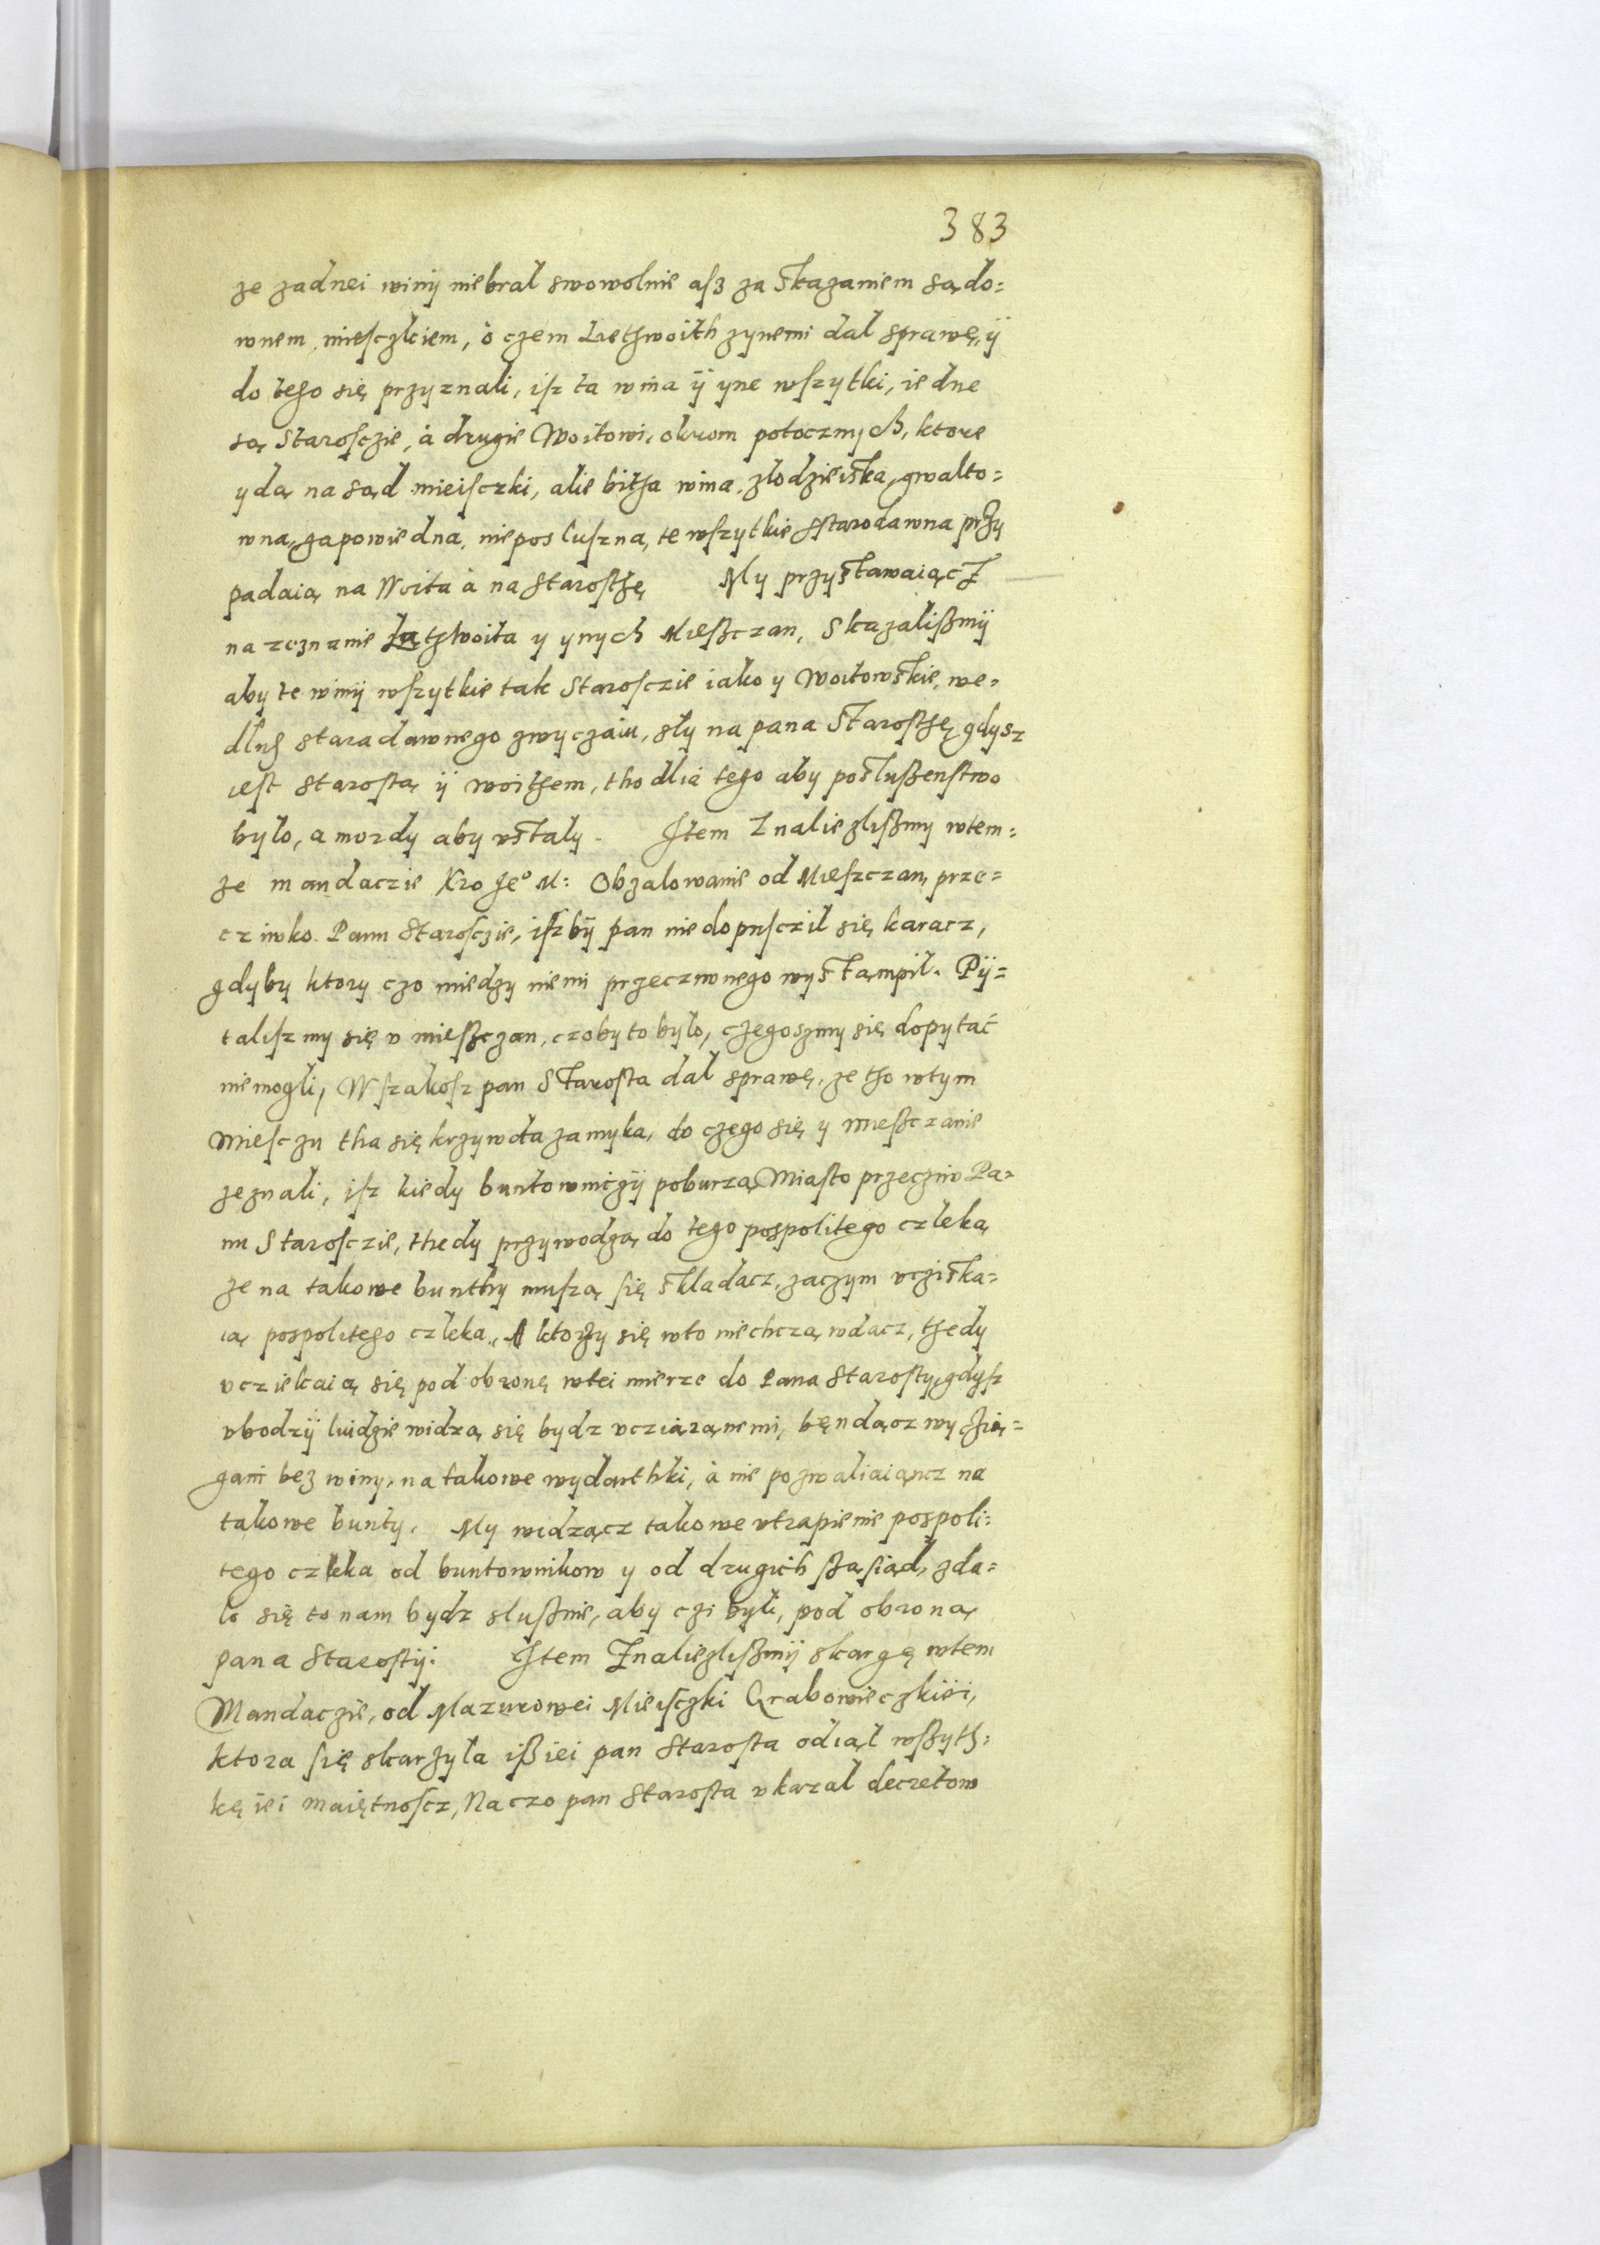 383
ze zadnei winÿ niebral swowolnie asz za skazaniem sądo=
wnem mieisczkiem, o czem Lietzwoith zynemi dal sprawę, ÿ
do tego się przyznali, isz ta wina ÿ yne wszytki, iedne
są Starosczie, à drugie Woitowi, okrom potocznych, ktore
ydą na sąd mieisczki, alie bitha wina, zlodzieiska, gwalto=
wna, zapowiedna, nieposluszna, te wszytkie starodawna przy
padaią na Woita à na Starosthę My przystawaiącz
na zeznanie Lątzwoita y ynych Miesczan, Skazalismÿ
aby te winÿ wszytkie tak Starosczie iako y Woitowskie, we=
dlug staradawnego zwyczaiu, sly na pana Starosthę gdysz
iest Starostą ÿ woithem, tho dlia tego aby poslusenstwo
bylo, a mordy aby ustaly. Item Znalieslismy wtem=
ze mandaczie Kro Je° M: Obzalowanie od Miesczan, prze=
cziwko Panu Starosczie, iszbÿ pan niedopusczil się karacz,
gdyby ktory czo miedzy niemi przecziwnego wystąmpil. Pÿ=
taliszmy się v miesczan, czoby to bylo, czegoszmy się dopytać
niemogli, Wszakosz pan Starosta dal sprawę, ze tho wtym
mieisczu tha się krzywda zamyka, do czego się y miesczanie
zeznali, isz kiedy buntowniczÿ poburzą Miasto przecziw Pa=
nu Starosczie, thedy przywodzą do tego pospolitego czleka,
ze na takowe bunthy muszą się skladacz, zaczym vcziska=
ią pospolitego czleka. A ktorzy się wto niechczą wdacz, thedy
vcziekaią się pod obronę wtei mierze do Pana Starosty, gdysz
vbodzÿ ludzie widzą się bydz vcziązanemi, bęndącz wyczią=
gani bez winy, na takowe wydarthki, à nie pozwaliaiąncz na
takowe bunty. My widzącz takowe vtrapienie pospoli=
tego czleka od buntownikow y od drugich sząsiad, zda=
lo się to nam bydz slusznie, aby czi byli, pod obroną
pana Starostÿ: Item Znalieslismÿ skargę wtem
Mandaczie, od Mazurowei Mieisczki Grabowieczkiei,
ktora się skarzyla isz iei pan Starosta odiąl wszyth=
kę iei maiętnoscz, Na czo pan Starosta vkazal decretow